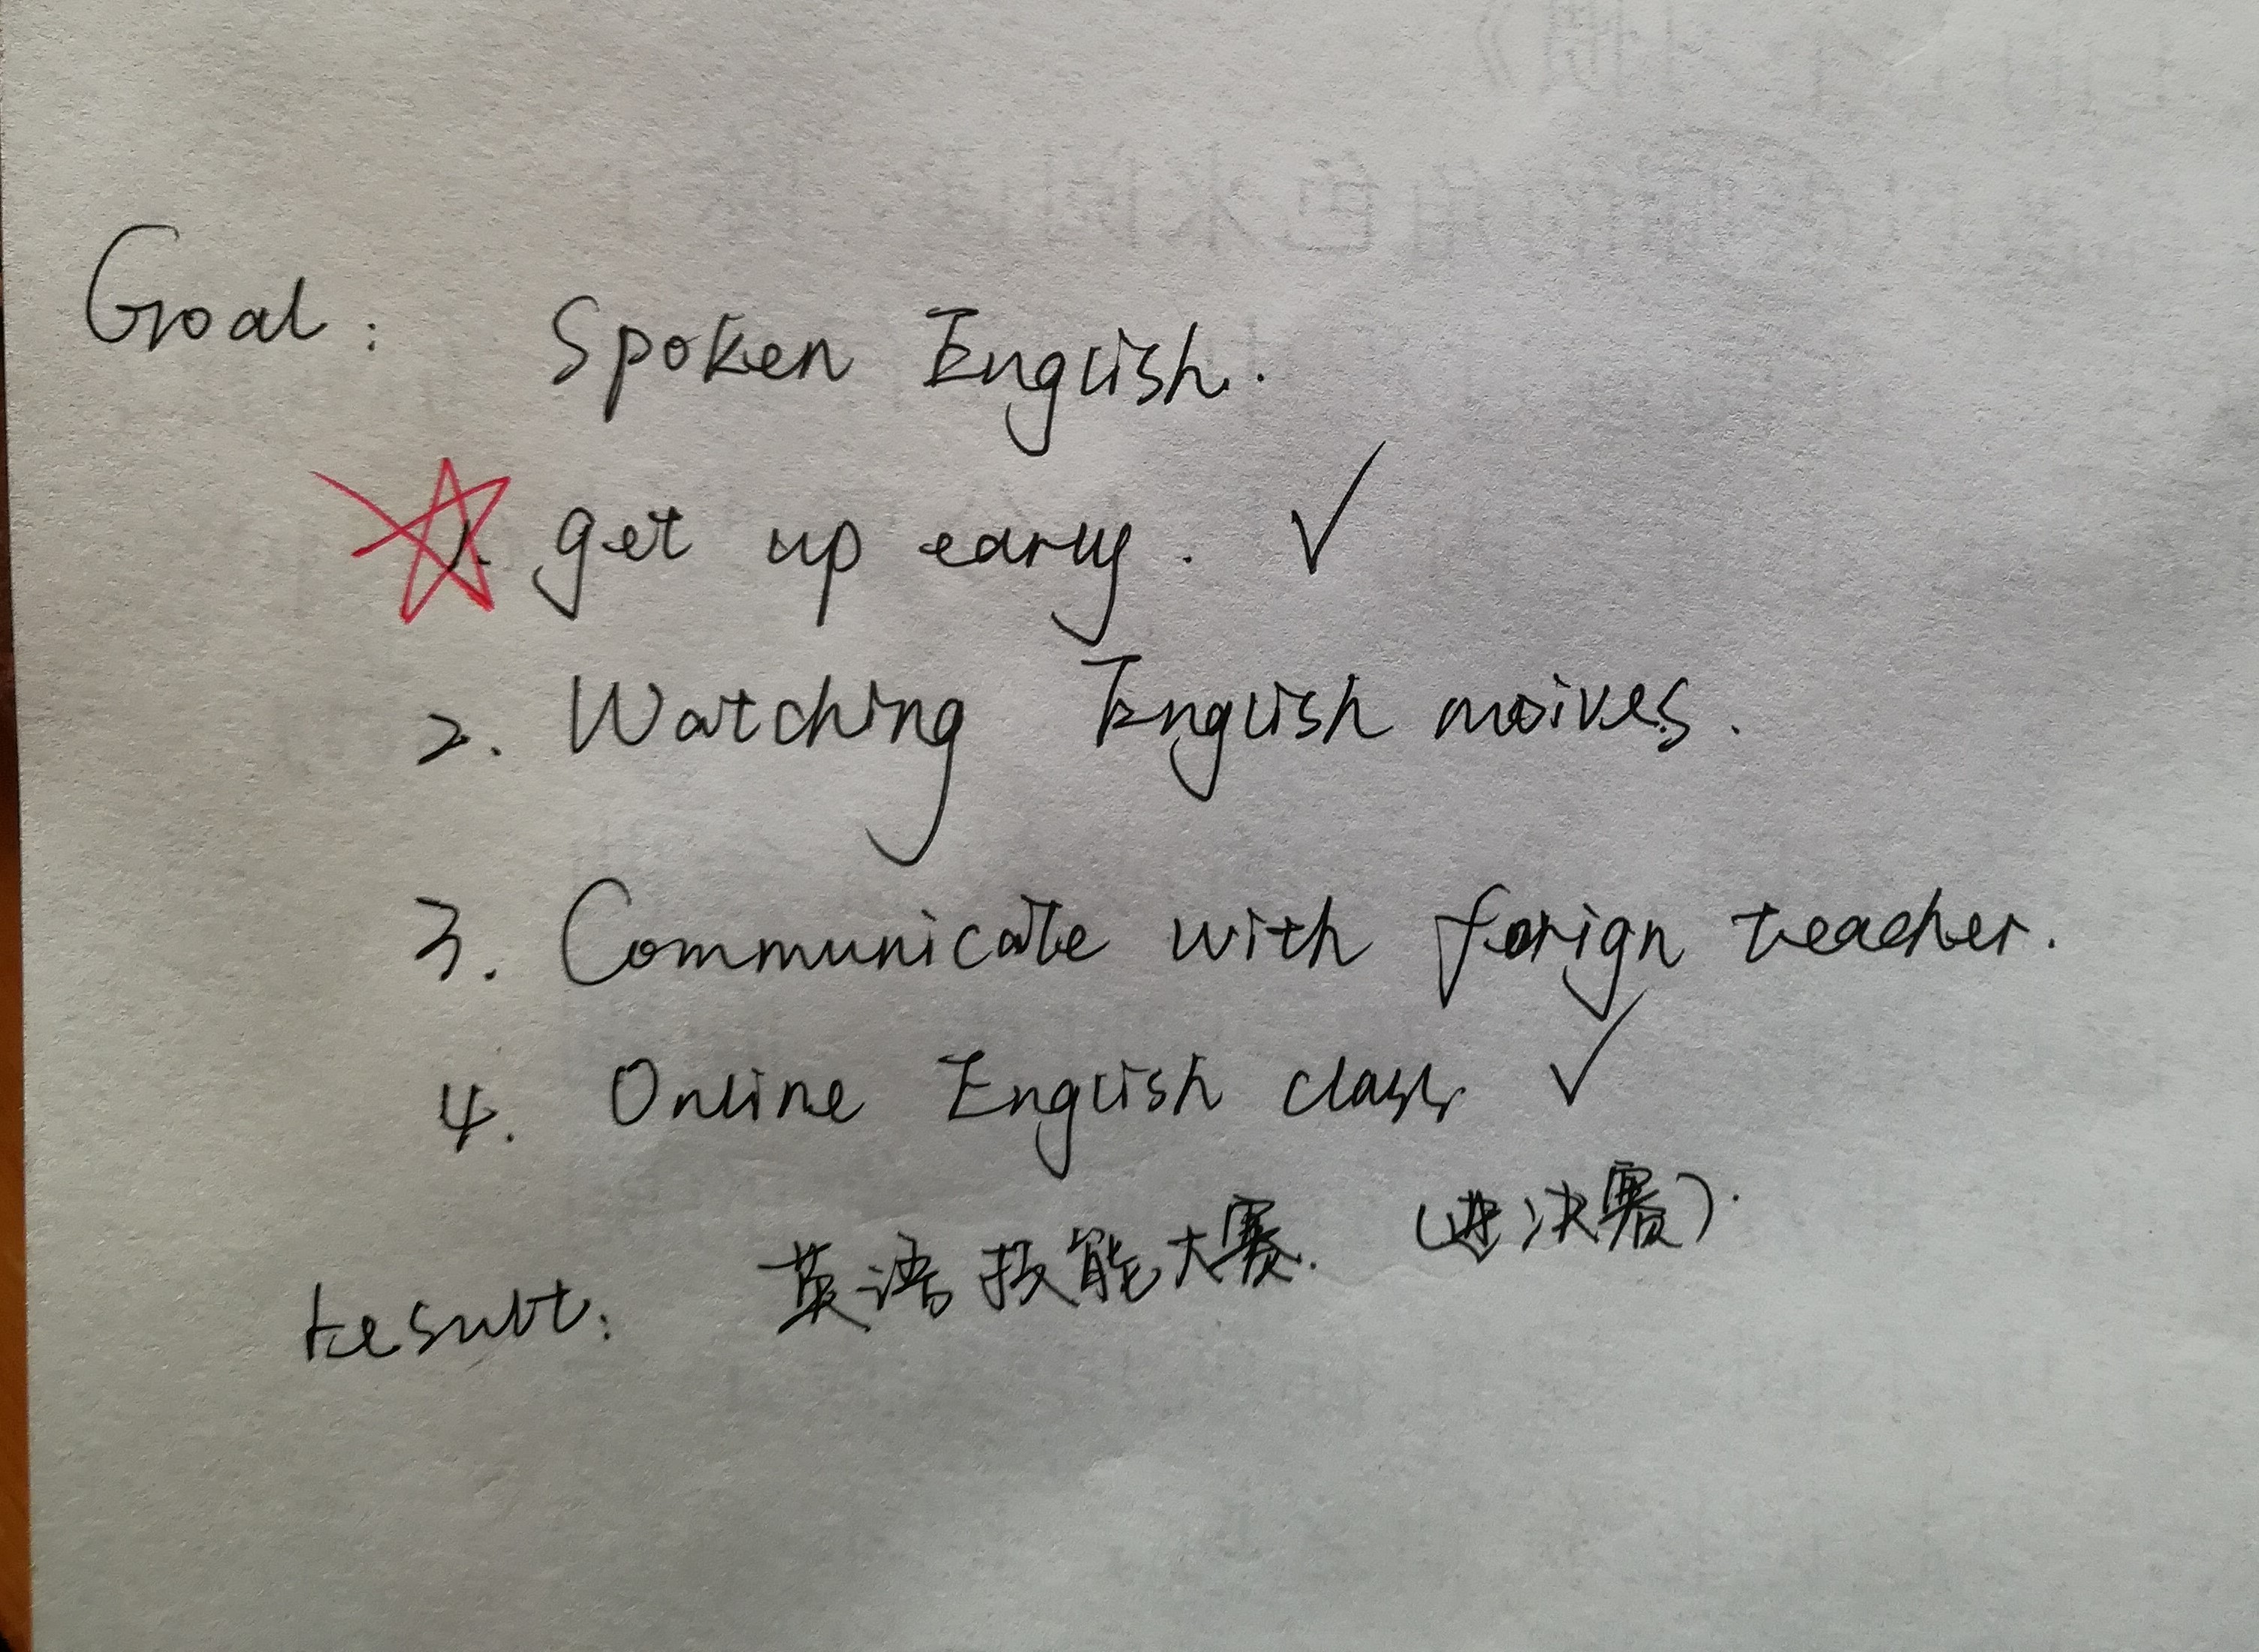 Goal: Spoken English.
1. get up early. ✓
2. Watching English moives.
3. Communicate with forign teacher.
4. Online English class ✓
result: 英语技能大赛. (进决赛).